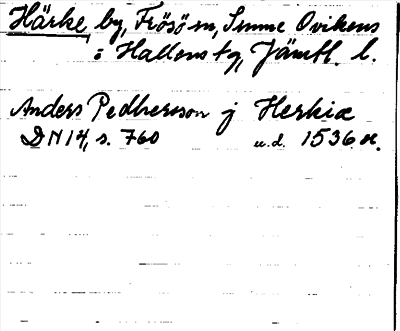 Härke by, Frösö sn, Sunne Ovikens
o Hallens tg, Jämtl. l.
Anders Pedhersson j Herkiæ
DN 14, s. 760 u.d. 1536 H.